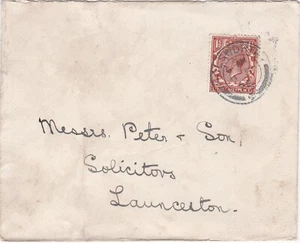 Messrs. Peter + Son,
Solicitors
Launceston.